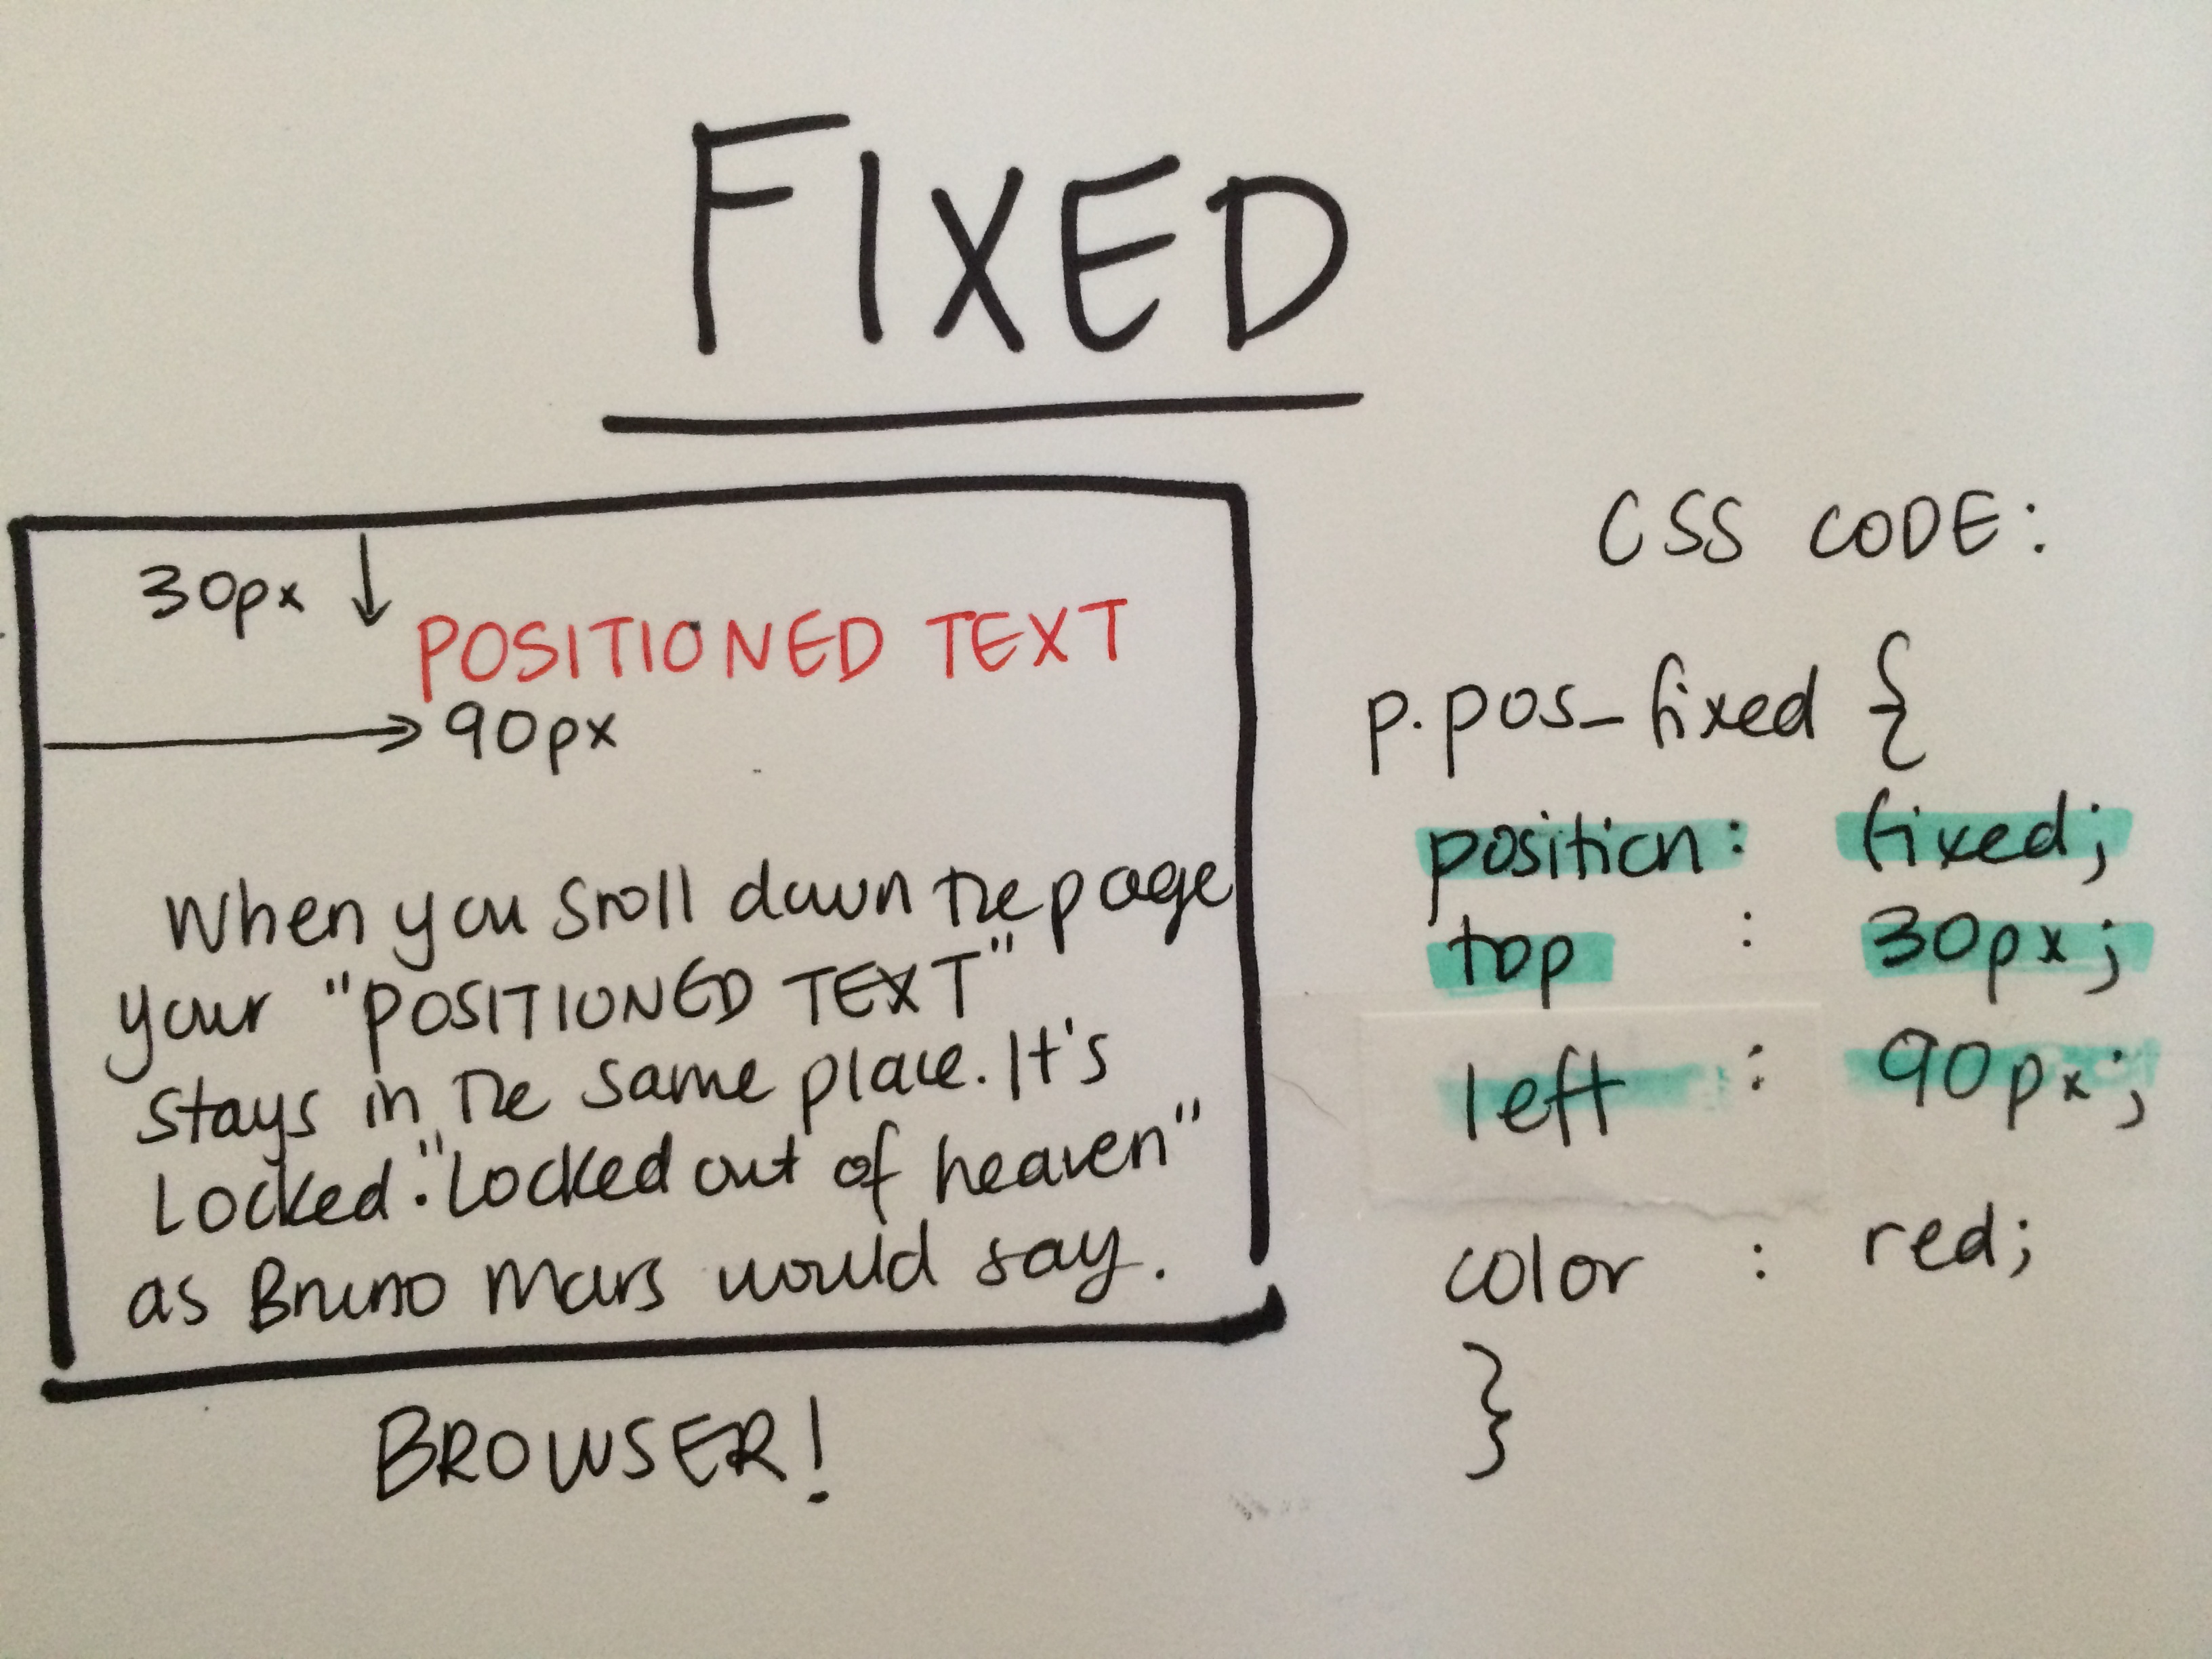 FIXED
30px
POSITIONED TEXT
90px
When you sroll down the page
your "POSITIONED TEXT"
stays in the same place. It's
Locked. "Locked out of heaven"
as Bruno Mars would say.
BROWSER!
CSS CODE:
p.pos_fixed {
position: fixed;
top : 30px;
left : 90px;
color : red;
}